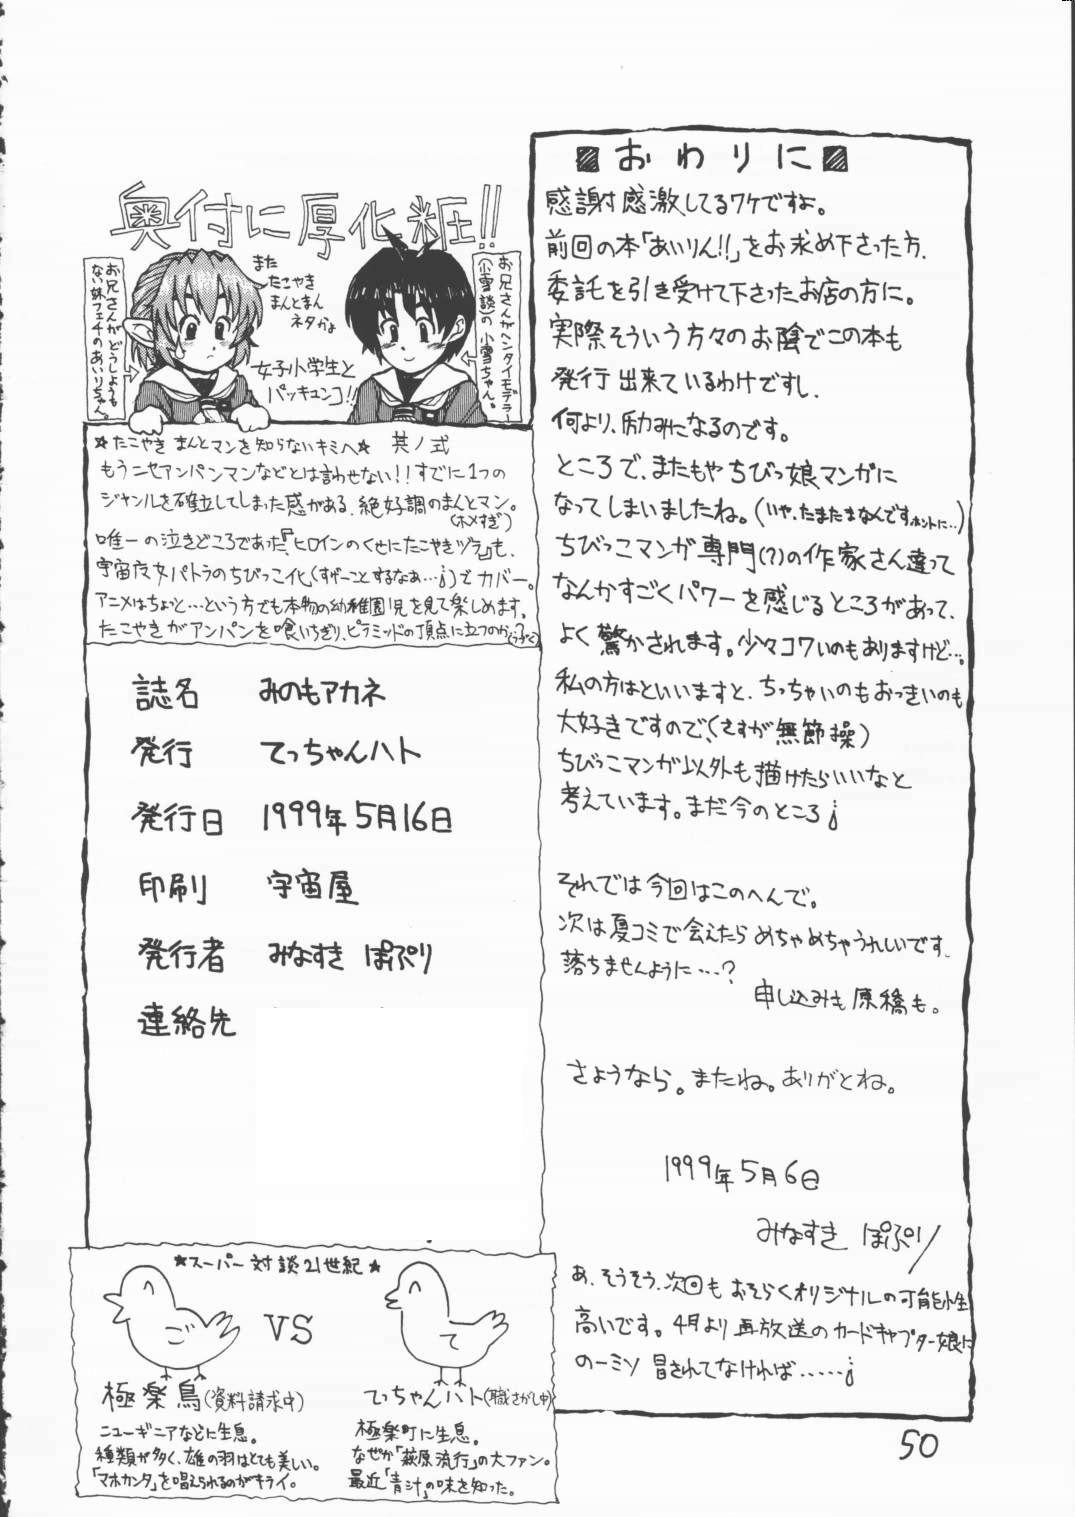 ■おわりに■
感謝感激してるワケですよ。
前回の本「あいりん!!」をお求め下さった方、
委託を引き受けて下さったお店の方に。
実際そういう方々のお陰でこの本も
発行出来ているわけですし、
何より、励みになるのです。
ところで、またもやちびっ娘マンガに
なってしまいましたね。(いや、たまたまなんですホントに…)
ちびっこマンガ専門(?)の作家さん達って
なんかすごくパワーを感じるところがあって、
よく驚かされます。少々コワいのもありますけど…。
私の方はといいますと、ちっちゃいのもおっきいのも
大好きですので、(さすが無節操)
ちびっこマンガ以外も描けたらいいなと
考えています。まだ今のところ
それでは今回はこのへんで。
次は夏コミで会えたらめちゃめちゃうれしいです、
落ちませんように…?
申し込みも原稿も。
さようなら。またね。ありがとね。
1999年5月6日
みなすき ぽぷり
あ、そうそう、次回もおそらくオリジナルの可能性
高いです。4月より再放送のカードキャプター娘に
のーミソ冒されてなければ……
奥付に厚化粧!!
お兄さんがどうしようも
ない妹フェチのあいりちゃん。
また
たこやき
まんとまん
ネタかよ
女子小学生と
パッキュンコ!!
お兄さんがヘンタイモデラー
(小雪談)の小雪ちゃん。
☆たこやきまんとマンを知らないキミへ☆ 其ノ弐
もうニセアンパンマンなどとは言わせない!!すでに1つの
ジャンルを確立してしまった感がある、絶好調のまんとマン。
(ホメすぎ)
唯一の泣きどころであった『ヒロインのくせにたこやきヅラ』も、
宇宙女パトラのちびっこ化(すげーことするなあ…)でカバー。
アニメはちょっと…という方でも本物の幼稚園児を見て楽しめます。
たこやきがアンパンを喰いちぎり、ピラミッドの頂点に立つのか?
誌名 みのもアカネ
発行 てっちゃんハト
発行日 1999年5月16日
印刷 宇宙屋
発行者 みなすき ぽぷり
連絡先
★スーパー対談21世紀★
ご
VS
て
極楽鳥(資料請求中)
ニューギニアなどに生息。
種類が多く、雄の羽はとても美しい。
「マホカンタ」を唱えられるのがキライ。
てっちゃんハト(職さがし中)
極楽町に生息。
なぜか「萩原流行」の大ファン。
最近「青汁」の味を知った。
50